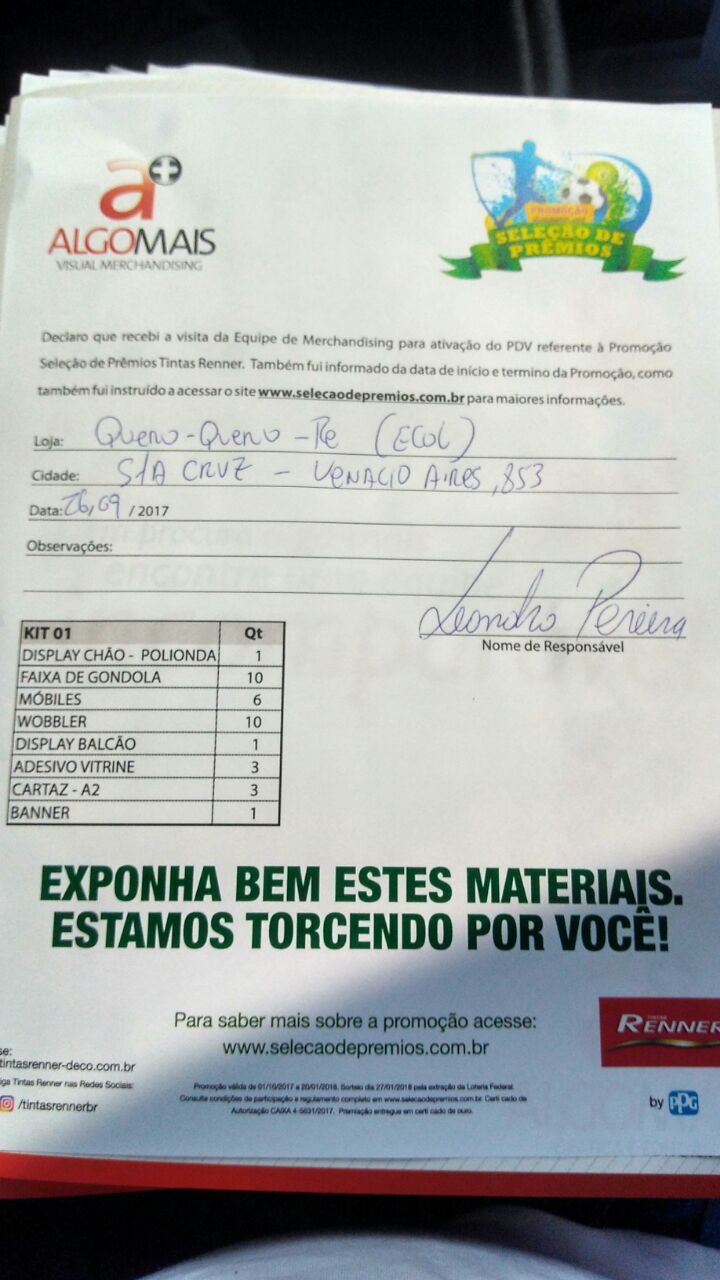 a+
ALGOMAIS
VISUAL MERCHANDISING
PROMOÇÃO
SELEÇÃO DE
PRÊMIOS
Declaro que recebi a visita da Equipe de Merchandising para ativação do PDV referente à Promoção
Seleção de Prêmios Tintas Renner. Também fui informado da data de início e termino da Promoção, como
também fui instruído a acessar o site www.selecaodepremios.com.br para maiores informações.
Loja: Quero-Quero - Re (ECOL)
Cidade: S/A CRUZ - VENACIO AIRES, 853
Data: 26/09 / 2017
Observações:
Leandro Pereira
Nome de Responsável
KIT 01 Qt
DISPLAY CHÃO - POLIONDA 1
FAIXA DE GONDOLA 10
MÓBILES 6
WOBBLER 10
DISPLAY BALCÃO 1
ADESIVO VITRINE 3
CARTAZ - A2 3
BANNER 1
EXPONHA BEM ESTES MATERIAIS.
ESTAMOS TORCENDO POR VOCÊ!
Para saber mais sobre a promoção acesse:
www.selecaodepremios.com.br
TINTAS
RENNER
by PPG
se:
tintasrenner-deco.com.br
iga Tintas Renner nas Redes Sociais:
/tintasrennerbr
Promoção válida de 01/10/2017 a 20/01/2018. Sorteio dia 27/01/2018 pela extração da Loteria Federal.
Consulte condições de participação e regulamento completo em www.selecaodepremios.com.br. Certi cado de
Autorização CAIXA 4-5631/2017. Premiação entregue em certi cado de ouro.